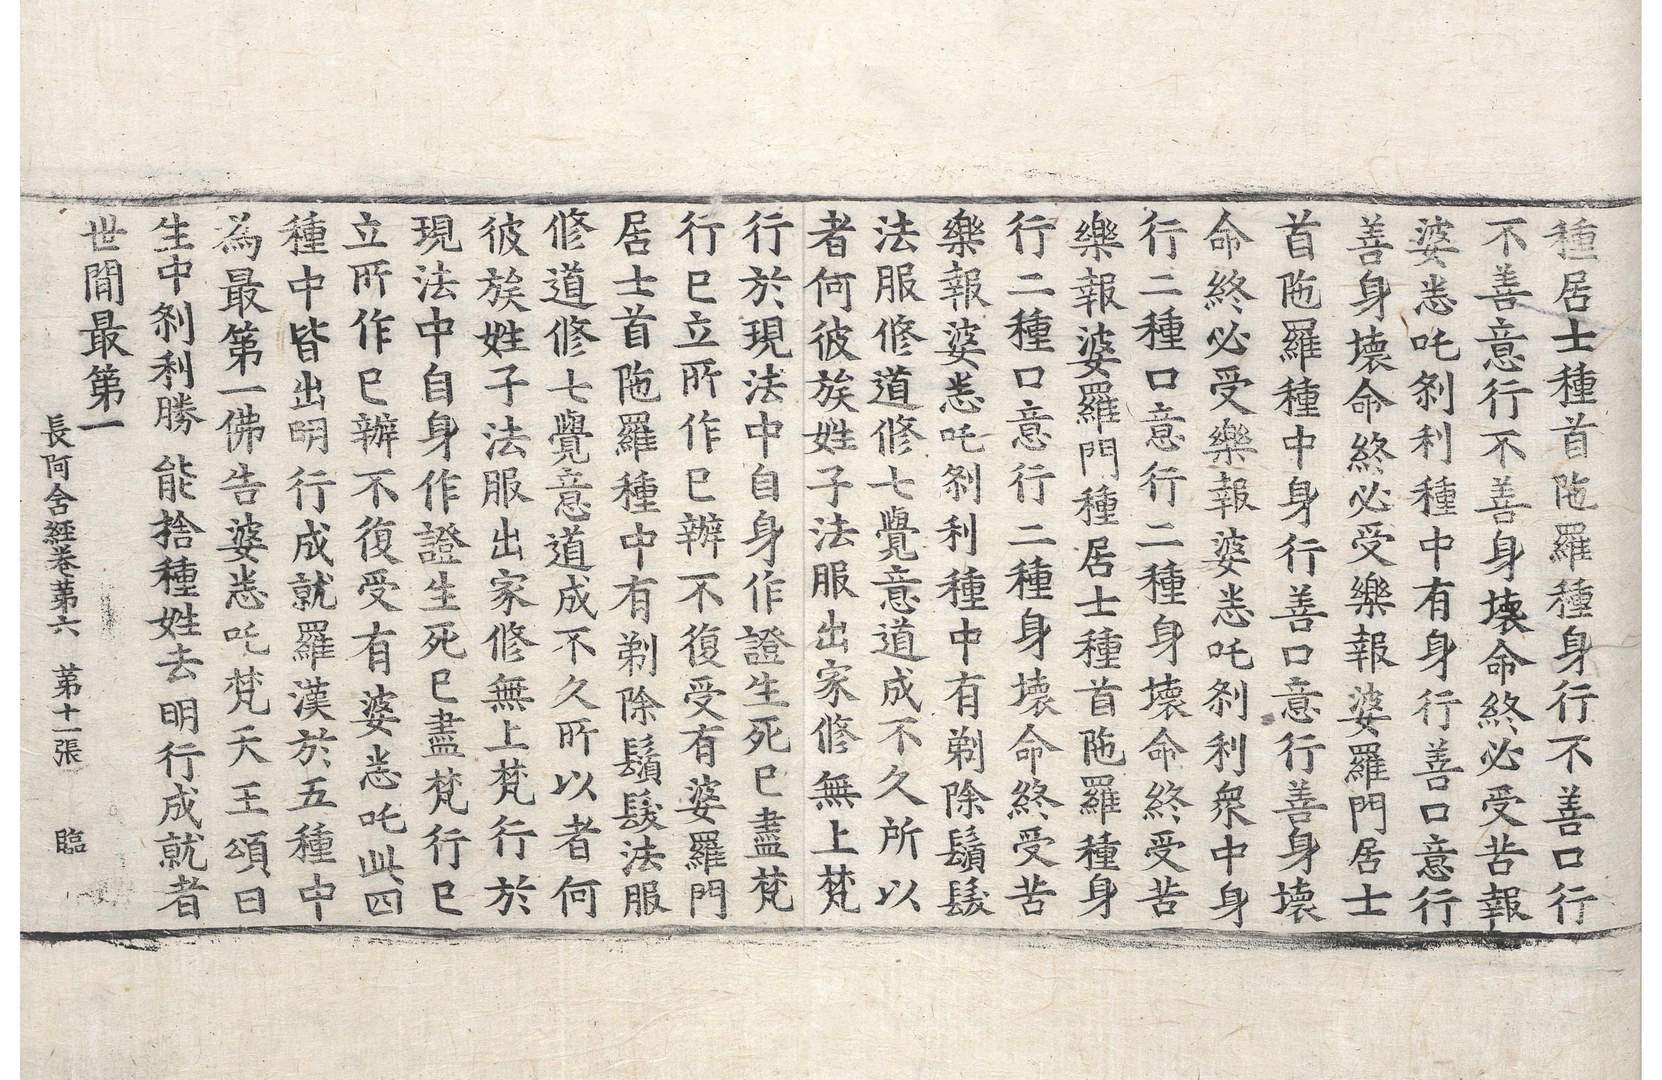 種居士種首陁羅種身行不善口行
不善意行不善身壞命終必受苦報
婆悉吒刹利種中有身行善口意行
善身壞命終必受樂報婆羅門居士
首陁羅種中身行善口意行善身壞
命終必受樂報婆悉吒刹利衆中身
行二種口意行二種身壞命終受苦
樂報婆羅門種居士種首陁羅種身
行二種口意行二種身壞命終受苦
樂報婆悉吒刹利種中有剃除鬚髮
法服修道修七覺意道成不久所以
者何彼族姓子法服出家修無上梵
行於現法中自身作證生死已盡梵
行已立所作已辦不復受有婆羅門
居士首陁羅種中有剃除鬚髮法服
修道修七覺意道成不久所以者何
彼族姓子法服出家修無上梵行於
現法中自身作證生死已盡梵行已
立所作已辦不復受有婆悉吒此四
種中皆出明行成就羅漢於五種中
為最第一佛告婆悉吒梵天王頌曰
生中刹利勝 能捨種姓去明行成就者
世間最第一
長阿含經卷第六 第十一張 臨